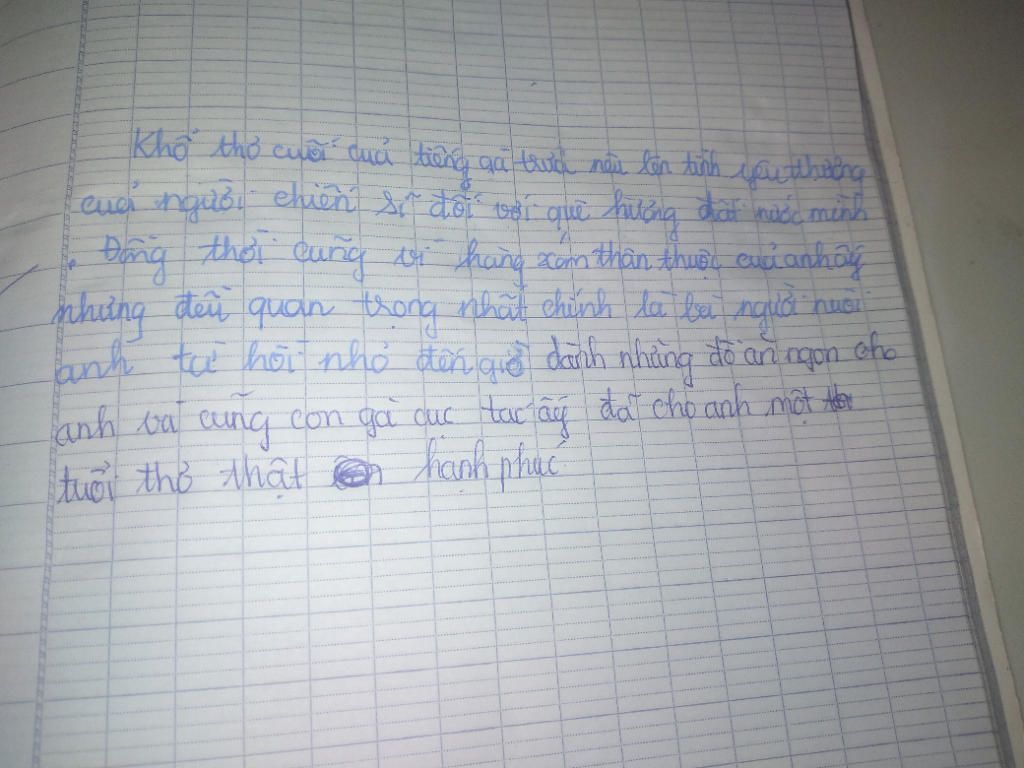 Khổ thơ cuối cuả tiếng gà trưa nêu lên tình yêu thương
cuả người chiến sĩ đối với quê hương đất nước mình
. Đồng thời cũng vì hàng xóm thân thuộc cuả anh ấy
nhưng đều quan trọng nhất chính là bà người nuôi
anh từ hồi nhỏ đến giờ dành những đồ ăn ngon cho
anh và cũng con gà cục tác ấy đã cho anh một
tuổi thơ thật hạnh phúc